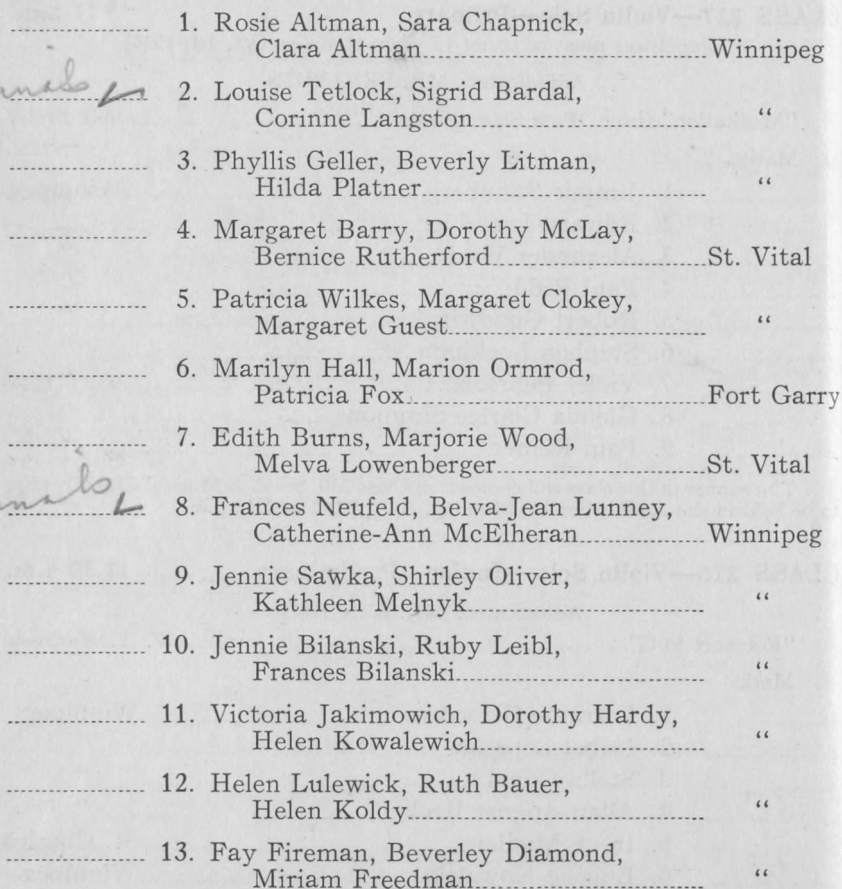 1. Rosie Altman, Sara Chapnick,
Clara Altman Winnipeg
2. Louise Tetlock, Sigrid Bardal,
Corinne Langston “
3. Phyllis Geller, Beverly Litman,
Hilda Platner “
4. Margaret Barry, Dorothy McLay,
Bernice Rutherford St. Vital
5. Patricia Wilkes, Margaret Clokey,
Margaret Guest “
6. Marilyn Hall, Marion Ormrod,
Patricia Fox Fort Garry
7. Edith Burns, Marjorie Wood,
Melva Lowenberger St. Vital
8. Frances Neufeld, Belva-Jean Lunney,
Catherine-Ann McElheran Winnipeg
9. Jennie Sawka, Shirley Oliver,
Kathleen Melnyk “
10. Jennie Bilanski, Ruby Leibl,
Frances Bilanski “
11. Victoria Jakimowich, Dorothy Hardy,
Helen Kowalewich “
12. Helen Lulewick, Ruth Bauer,
Helen Koldy “
13. Fay Fireman, Beverley Diamond,
Miriam Freedman “